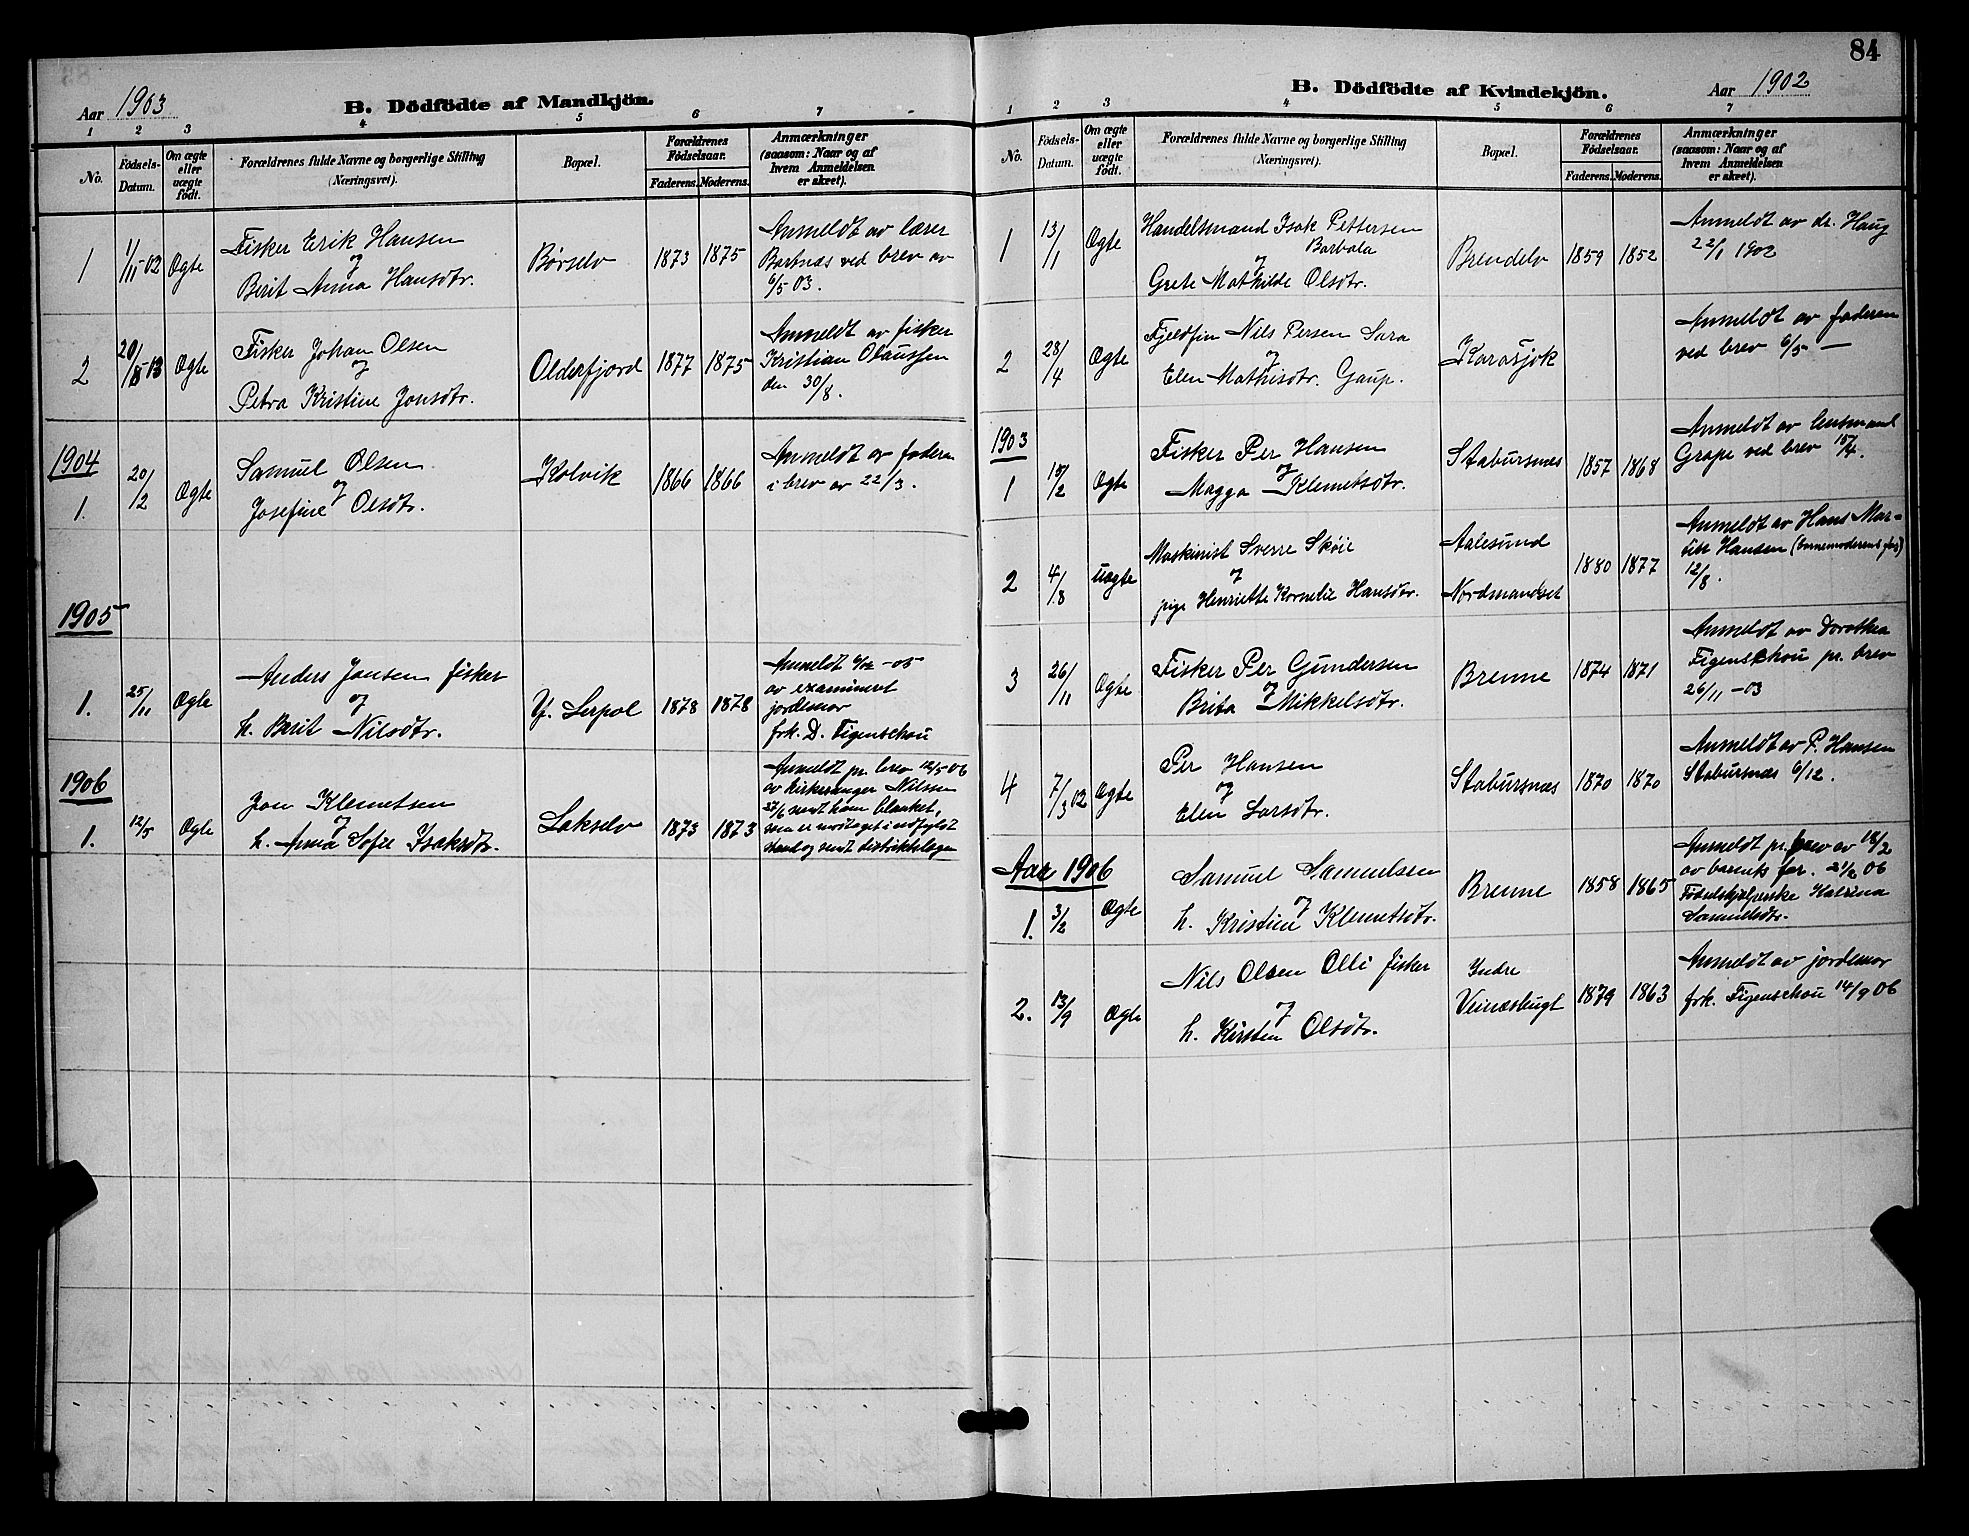 Aar 1903
B. Dödfödte af Mandkjön.
1 2 3 4 5 6 7
No.
Födsels-Datum.
Om ægte eller uægte födt.
Forældrenes fulde Navne og borgerlige Stilling
(Næringsvei).
Bopæl.
Forældrenes Födselsaar.
Faderens. Moderens.
Anmærkninger
(saasom: Naar og af
hvem Anmeldelsen
er skeet).
1 1/11-02 Ægte
Fisker Erik Hansen
og
Berit Anna Hansdtr.
Børselv 1873 1875
Anmeldt av lærer
Barbnæs ved brev av
6/5 03.
2 20/8-03 Ægte
Fisker Johan Olsen
og
Petra Kristine Jonsdtr.
Olderfjord 1877 1875
Anmeldt av fisker
Kristian Olaussen
den 30/8.
1904
1. 20/2 Ægte
Samuel Olsen
og
Josefine Olsdtr.
Kolvik 1866 1866
Anmeldt av faderen
i brev av 22/3.
1905
1. 25/11 Ægte
Anders Jonsen fisker
og
h. Berit Nilsdtr.
Y. Lerpol 1878 1878
Anmeldt 6/12-05
av examineret
jordemor
frk. D. Figenschou
1906
1. 12/5 Ægte
Jon Klemetsen
og
h. Anna Sofie Isaksdtr.
Lakselv 1873 1873
Anmeldt pr. brev 12/5 06
av kirkesanger Nilssen
27/6 sendt ham blanket,
som er modtaget i udfyldt
stand og sendt distriktslægen
84
B. Dödfödte af Kvindekjön.
Aar 1902
1 2 3 4 5 6 7
No.
Födsels-Datum.
Om ægte eller uægte födt.
Forældrenes fulde Navne og borgerlige Stilling
(Næringsvei).
Bopæl.
Forældrenes Födselsaar.
Faderens. Moderens.
Anmærkninger
(saasom: Naar og af
hvem Anmeldelsen
er skeet).
1 13/1 Ægte
Handelsmand Isak Pettersen
Barbala
og
Grete Mathilde Olsdtr.
Brendelv 1859 1852
Anmeldt av dr. Haug
22/1 1902
2 28/4 Ægte
Fjeldfin Nils Persen Sara
og
Elen Mathisdtr. Gaup.
Karasjok
Anmeldt av faderen
ved brev 6/5 —
1903
1 15/2 Ægte
Fisker Per Hansen
og
Magga Klemetsdtr.
Stabursnæs 1857 1868
Anmeldt av lensmand
Grape ved brev 15/4.
2 4/8 uægte
Maskinist Sverre Skøie
og
pige Henriette Kornelie Hansdtr.
Aalesund
Nordmandset
1880 1877
Anmeldt av Hans Mar-
tin Hansen (barnemoderens far)
12/8.
3 26/11 Ægte
Fisker Per Gundersen
og
Brita Mikkelsdtr.
Brenne 1874 1871
Anmeldt av Dorothea
Figenschou pr. brev
26/11-03
4 7/3 02 Ægte
Per Hansen
og
Elen Larsdtr.
Stabursnæs 1870 1870
Anmeldt av P. Hansen
Stabursnæs 6/12.
Aar 1906
1. 3/2 Ægte
Samuel Samuelsen
og
h. Kristine Klemetsdtr.
Brenne 1858 1865
Anmeldt pr. brev av 18/2
av barnets far. 21/2 06
Fødselshjælperske Katrina
Samuelsdtr.
2. 13/9 Ægte
Nils Olsen Olli fisker
og
h. Kirsten Olsdtr.
Indre
Veinæsbugt
1879 1863
Anmeldt av jordemor
frk. Figenschou 14/9 06